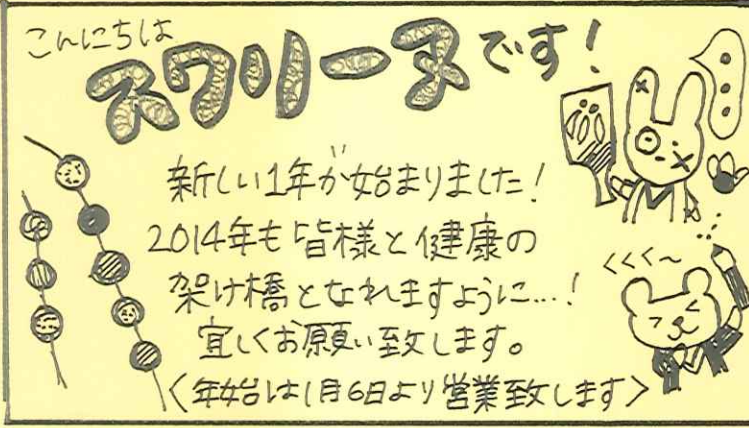 こんにちは
スワリーヌです!
新しい1年が始まりました!
2014年も皆様と健康の
架け橋となれますように…!
宜しくお願い致します。
くくく〜
〈年始は1月6日より営業致します〉